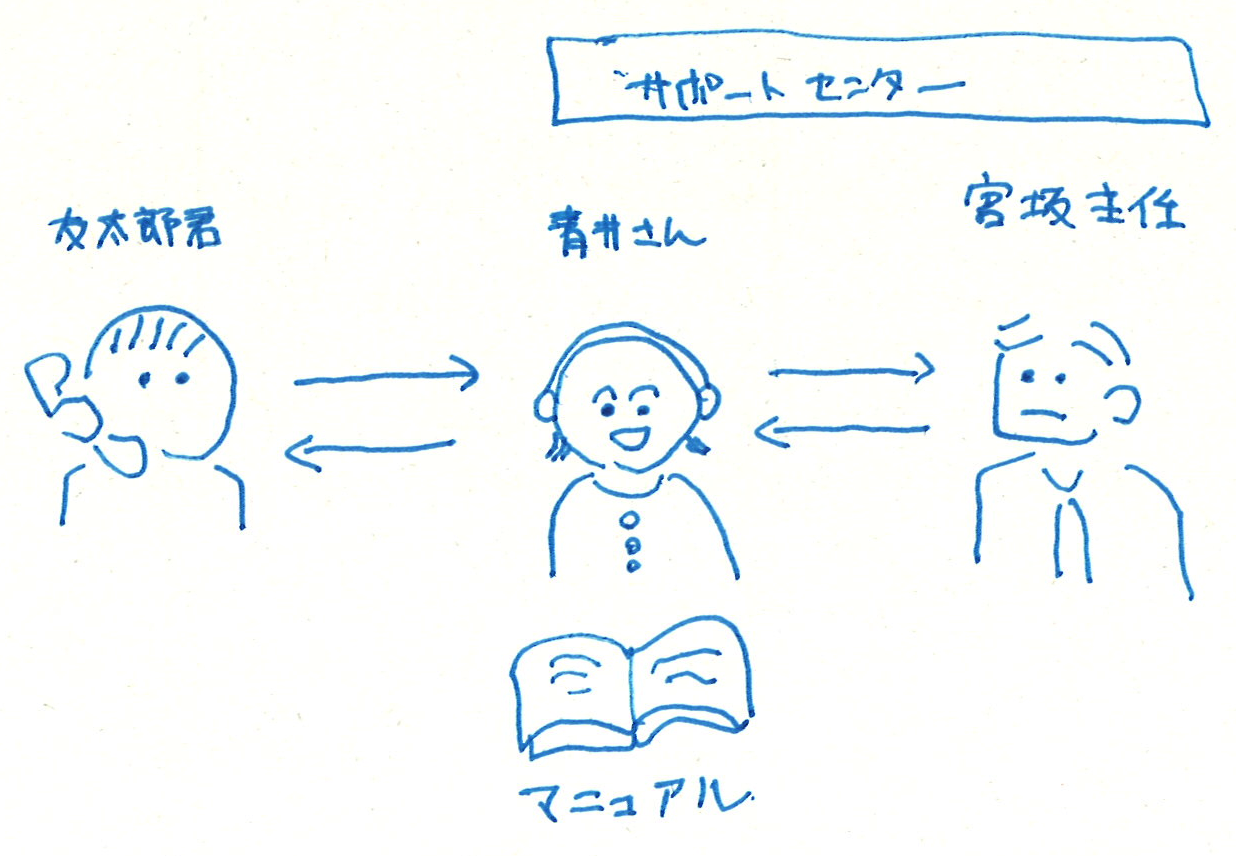 サポートセンター
友太郎君
青井さん
宮坂主任
マニュアル